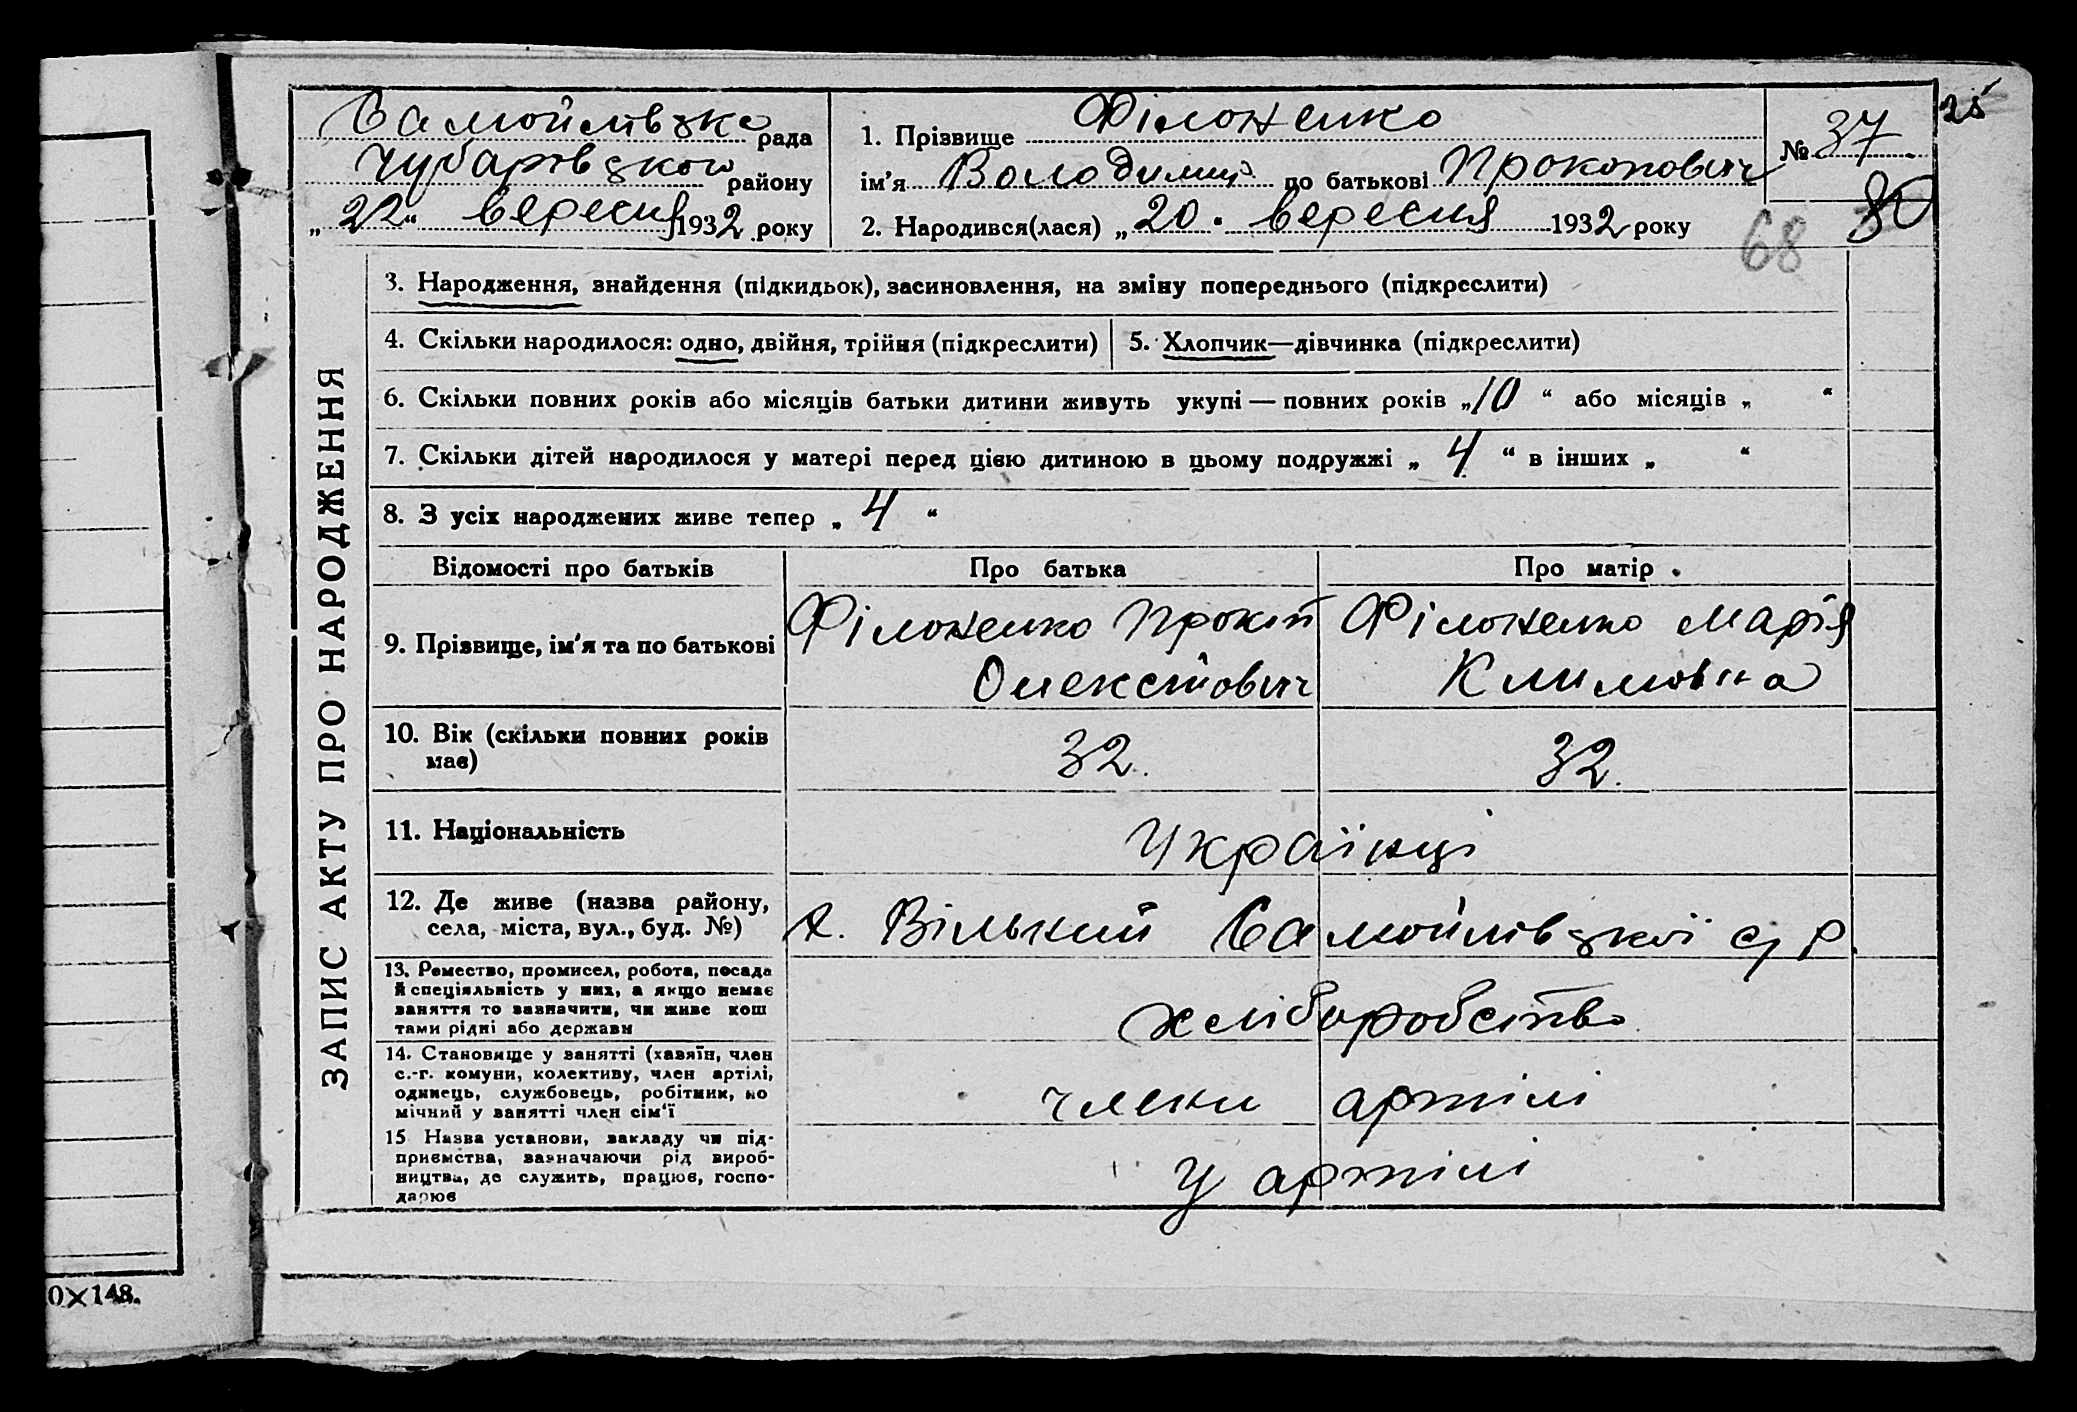 Самойлівзка рада
Чубарівзкого району
„ 22 “ вересня 1932 року
1. Прізвище Філоненко
ім’я Володимир по батькові Прокопович
2. Народився(лася) „ 20 . вересня 1932 року
№ 37
25
80
68
ЗАПИС АКТУ ПРО НАРОДЖЕННЯ
3. Народження, знайдення (підкидьок), засиновлення, на зміну попереднього (підкреслити)
4. Скільки народилося: одно, двійня, трійня (підкреслити)
5. Хлопчик—дівчинка (підкреслити)
6. Скільки повних років або місяців батьки дитини живуть укупі — повних років „ 10 “ або місяців „ “
7. Скільки дітей народилося у матері перед цією дитиною в цьому подружжі „ 4 “ в інших „ “
8. З усіх народжених живе тепер „ 4 “
Відомості про батьків
Про батька
Про матір
9. Прізвище, ім’я та по батькові
Філоненко Прокіп
Олексійович
Філоненко Марія
Климовна
10. Вік (скільки повних років
має)
32.
32.
11. Національність
Українці
12. Де живе (назва району,
села, міста, вул., буд. №)
х. Вільний Самойлівзкої с/р.
13. Ремество, промисел, робота, посада
й спеціяльність у них, а якщо немає
заняття то зазначити, чи живе кош
тами рідні або держави
хліборобство
14. Становище у занятті (хазяїн, член
с.-г. комуни, колективу, член артілі,
одинець, службовець, робітник, по
мічний у занятті член сім’ї
члени артілі
15 Назва установи, закладу чи під-
приємства, зазначаючи рід вироб-
ництва, де служить, працює, госпо-
дарює
у артілі
0×148.